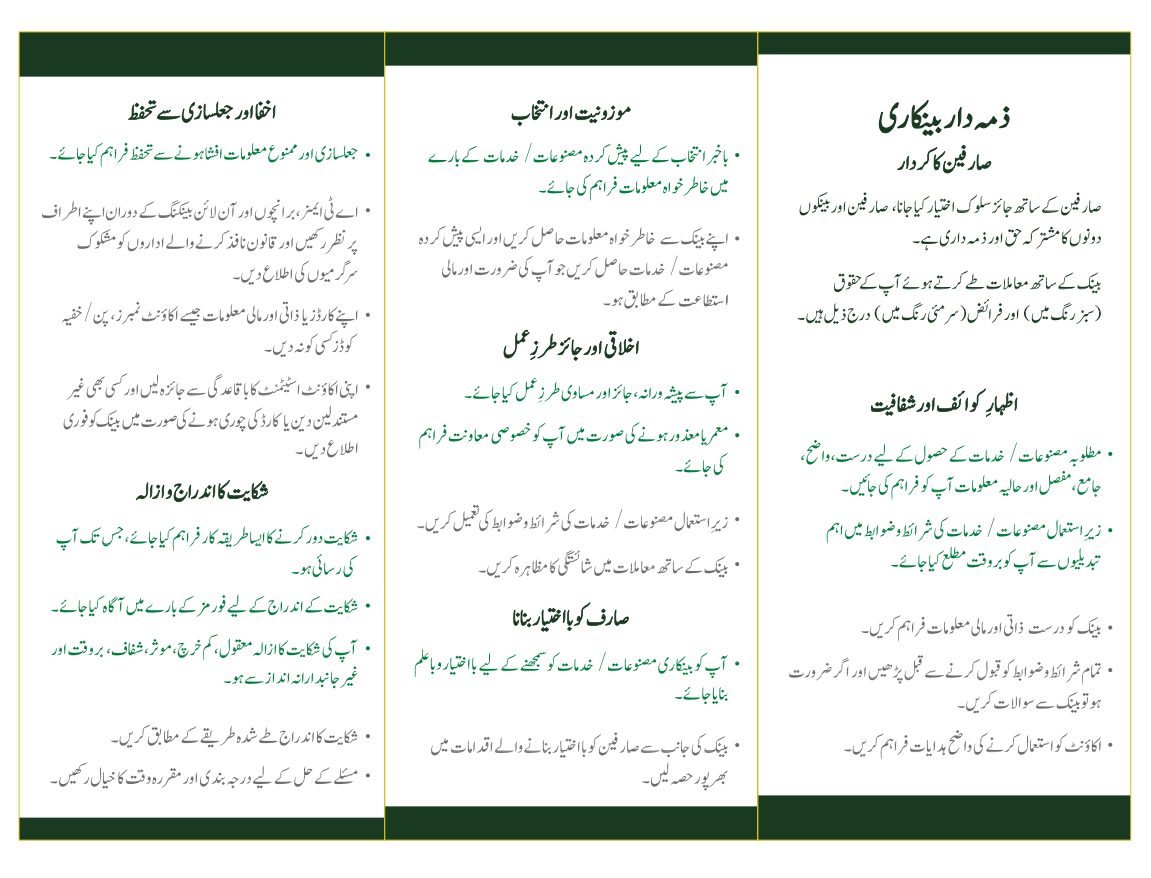 ذمہ دار بینکاری
صارفین کا کردار
صارفین کے ساتھ جائز سلوک اختیار کیا جانا، صارفین اور بینکوں
دونوں کا مشترکہ حق اور ذمہ داری ہے۔
بینک کے ساتھ معاملات طے کرتے ہوئے آپ کے حقوق
(سبز رنگ میں) اور فرائض (سرمئی رنگ میں) درج ذیل ہیں۔
اظہارِ کوائف اور شفافیت
• مطلوبہ مصنوعات / خدمات کے حصول کے لیے درست، واضح،
جامع، مفصل اور حالیہ معلومات آپ کو فراہم کی جائیں۔
• زیرِ استعمال مصنوعات / خدمات کی شرائط و ضوابط میں اہم
تبدیلیوں سے آپ کو بروقت مطلع کیا جائے۔
• بینک کو درست ذاتی اور مالی معلومات فراہم کریں۔
• تمام شرائط و ضوابط کو قبول کرنے سے قبل پڑھیں اور اگر ضرورت
ہو تو بینک سے سوالات کریں۔
• اکاؤنٹ کو استعمال کرنے کی واضح ہدایات فراہم کریں۔
موزونیت اور انتخاب
• باخبر انتخاب کے لیے پیش کردہ مصنوعات / خدمات کے بارے
میں خاطر خواہ معلومات فراہم کی جائے۔
• اپنے بینک سے خاطر خواہ معلومات حاصل کریں اور ایسی پیش کردہ
مصنوعات / خدمات حاصل کریں جو آپ کی ضرورت اور مالی
استطاعت کے مطابق ہو۔
اخلاقی اور جائز طرزِ عمل
• آپ سے پیشہ ورانہ، جائز اور مساوی طرزِ عمل کیا جائے۔
• معمر یا معذور ہونے کی صورت میں آپ کو خصوصی معاونت فراہم
کی جائے۔
• زیرِ استعمال مصنوعات / خدمات کی شرائط و ضوابط کی تعمیل کریں۔
• بینک کے ساتھ معاملات میں شائستگی کا مظاہرہ کریں۔
صارف کو بااختیار بنانا
• آپ کو بینکاری مصنوعات / خدمات کو سمجھنے کے لیے بااختیار و باعلم
بنایا جائے۔
• بینک کی جانب سے صارفین کو بااختیار بنانے والے اقدامات میں
بھرپور حصہ لیں۔
اخفا اور جعلسازی سے تحفظ
• جعلسازی اور ممنوع معلومات افشا ہونے سے تحفظ فراہم کیا جائے۔
• اے ٹی ایمنر، برانچوں اور آن لائن بینکنگ کے دوران اپنے اطراف
پر نظر رکھیں اور قانون نافذ کرنے والے اداروں کو مشکوک
سرگرمیوں کی اطلاع دیں۔
• اپنے کارڈز یا ذاتی اور مالی معلومات جیسے اکاؤنٹ نمبرز، پن / خفیہ
کوڈز کسی کو نہ دیں۔
• اپنی اکاؤنٹ اسٹیٹمنٹ کا باقاعدگی سے جائزہ لیں اور کسی بھی غیر
مستند لین دین یا کارڈ کی چوری ہونے کی صورت میں بینک کو فوری
اطلاع دیں۔
شکایت کا اندراج و ازالہ
• شکایت دور کرنے کا ایسا طریقہ کار فراہم کیا جائے، جس تک آپ
کی رسائی ہو۔
• شکایت کے اندراج کے لیے فورمز کے بارے میں آگاہ کیا جائے۔
• آپ کی شکایت کا ازالہ معقول، کم خرچ، موثر، شفاف، بروقت اور
غیر جانبدارانہ انداز سے ہو۔
• شکایت کا اندراج طے شدہ طریقے کے مطابق کریں۔
• مسئلے کے حل کے لیے درجہ بندی اور مقررہ وقت کا خیال رکھیں۔